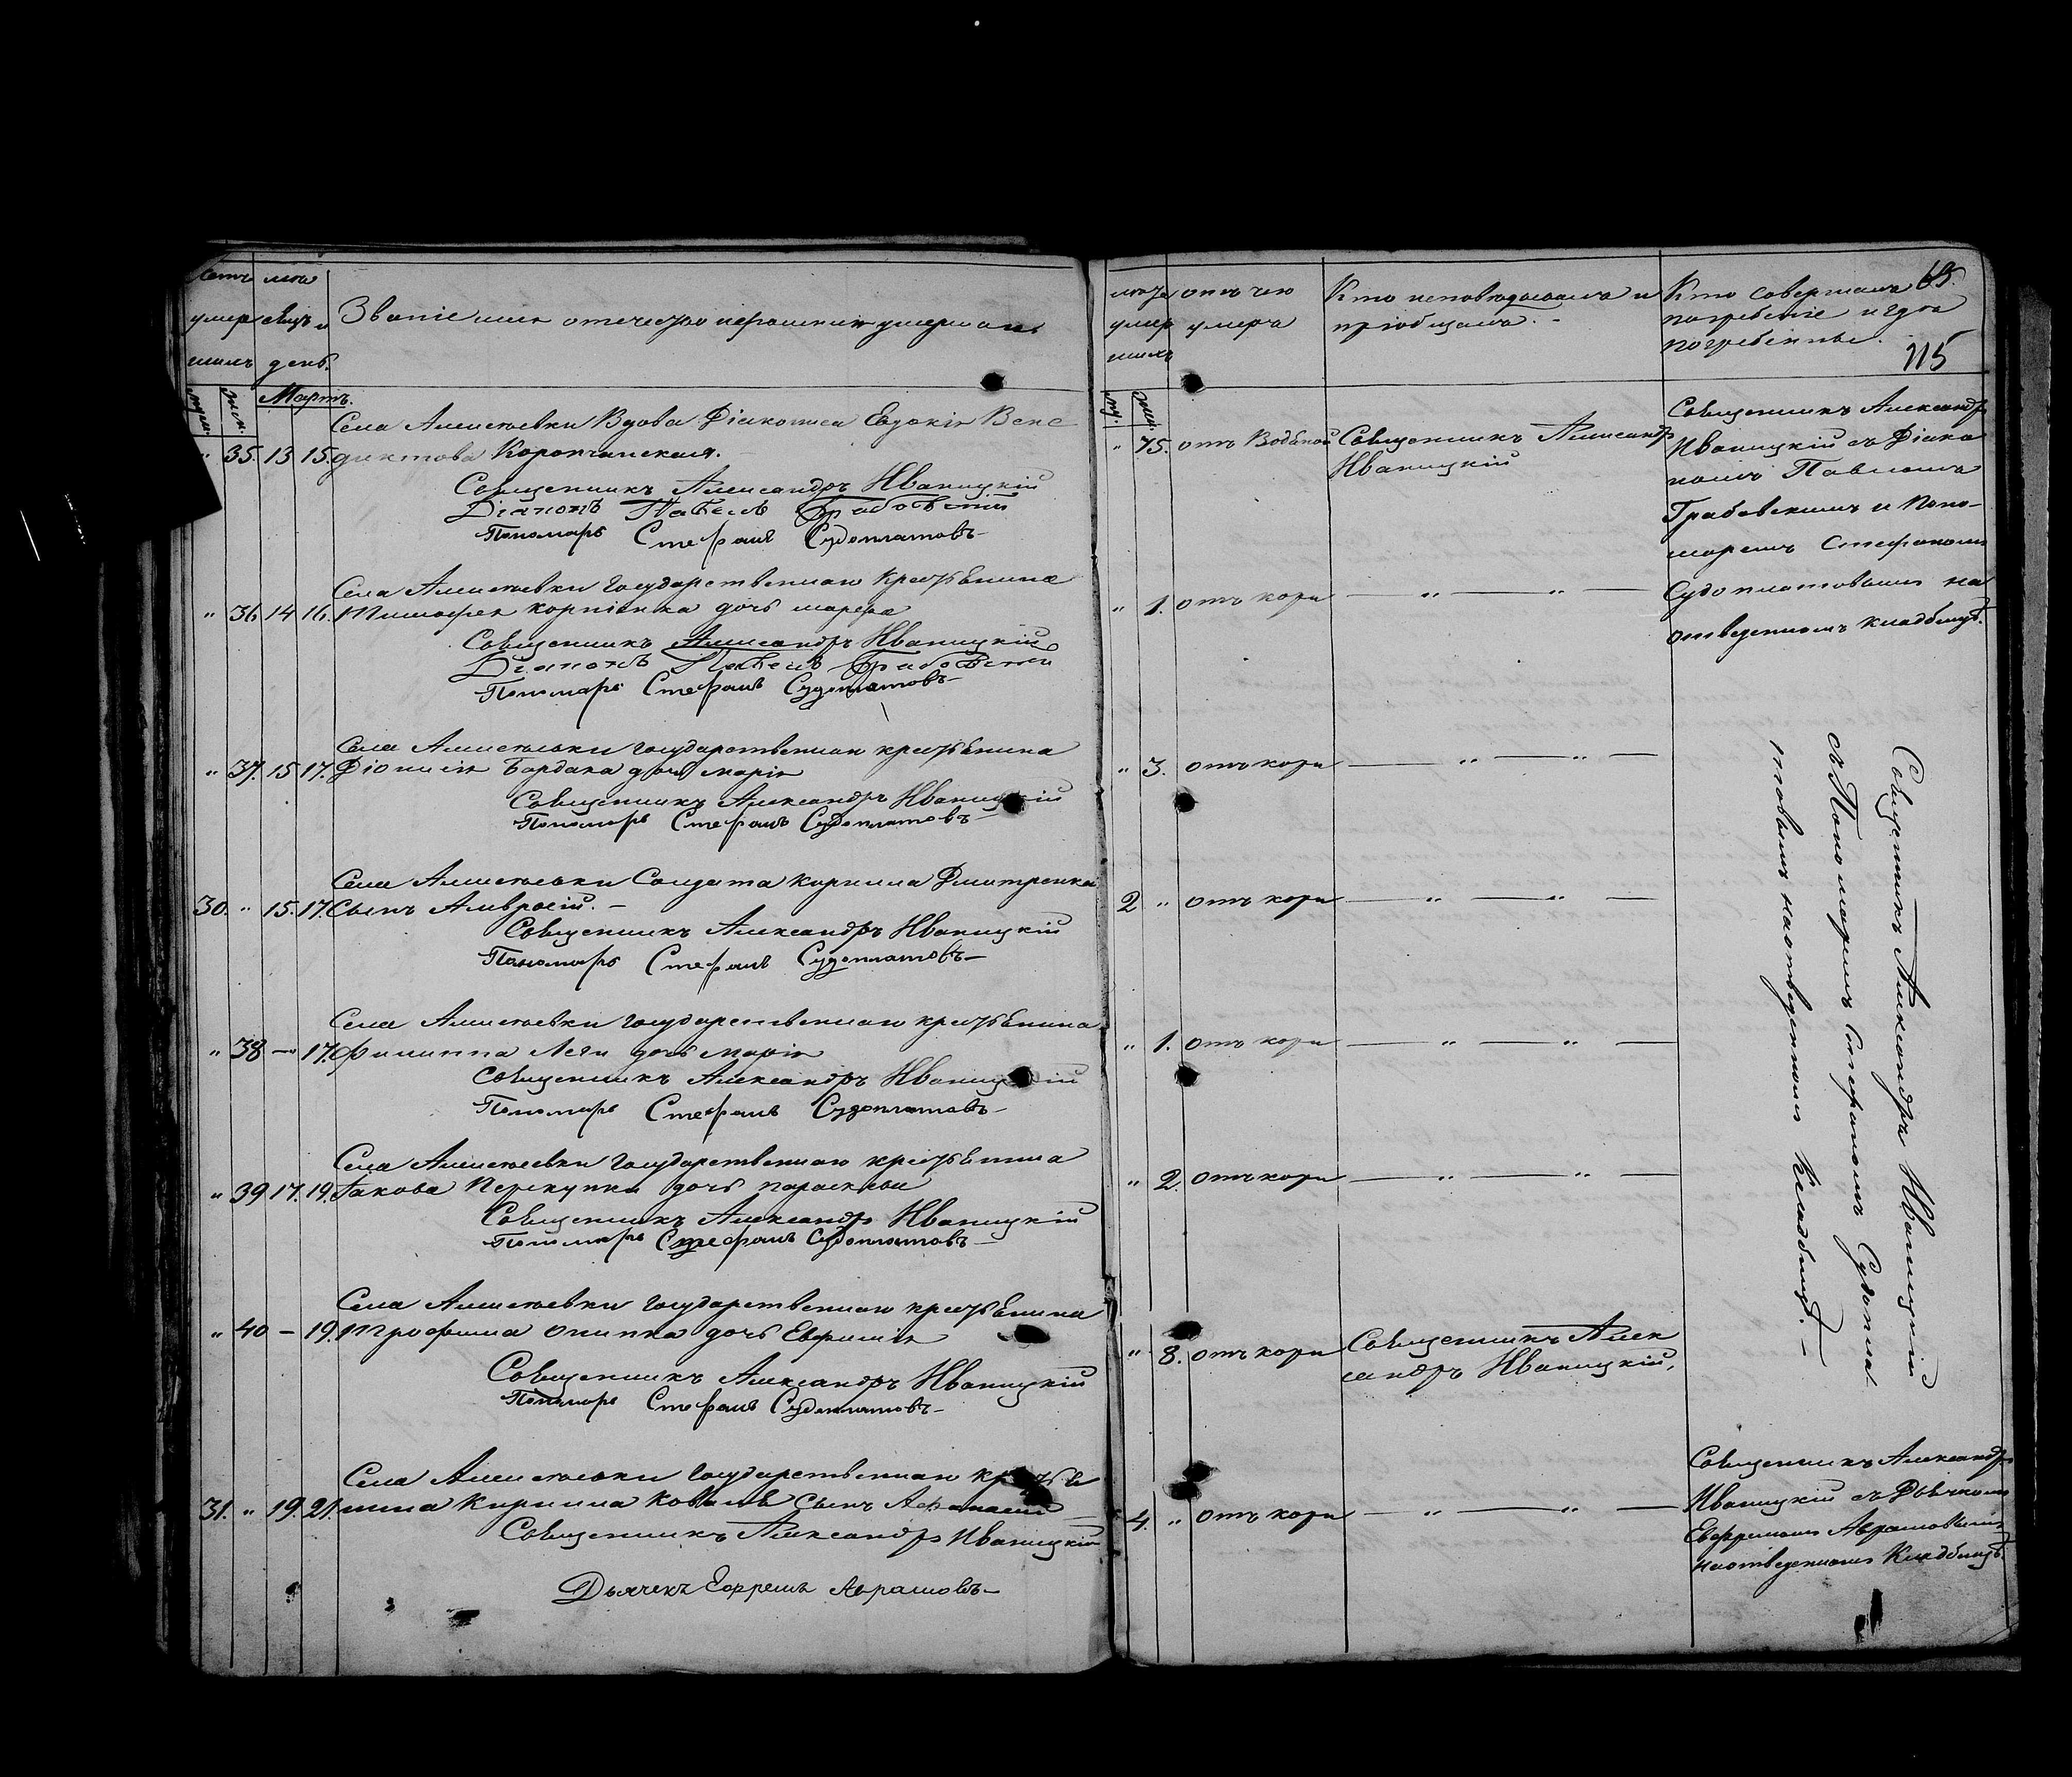 умер
шихъ
день.
Званіе имя отечество
Мартъ.
Села Алексѣевки Вдова Діаконица Евдокія Вене
" 35. 13 15. диктова Корончанская.
Священникъ Александръ Иваницкій
Діаконъ Павелъ Грабовскій
Пономарь Стефанъ Судоплатовъ
Села Алексѣевки государственнаго крестьянина
" 36 14 16. Тимофея Корніенка дочь марѳа
Священникъ Александръ Иваницкій
Діаконъ Павелъ Грабовскій
Пономарь Стефанъ Судоплатовъ
Села Алексѣевки государственнаго крестьянина
" 37. 15 17. Діонисія Бардака дочь марія
Священникъ Александръ Иваницкій
Пономарь Стефанъ Судоплатовъ
Села Алексѣевки Солдата Корнила Дмитренка
30. " 15. 17. Сынъ Амвросій. –
Священникъ Александръ Иваницкій
Пономарь Стефанъ Судоплатовъ
Села Алексѣевки государственнаго крестьянина
" 38 — 17. Филиппа Леги дочь марія
Священникъ Александръ Иваницкій
Пономарь Стефанъ Судоплатовъ
Села Алексѣевки государственнаго крестьянина
" 39 17. 19. Іакова Перекупки дочь параскева
Священникъ Александръ Иваницкій
Пономарь Стефанъ Судоплатовъ
Села Алексѣевки государственнаго крестьянина
" 40 – 19. Трофима дочь Евфимія
Священникъ Александръ Иваницкій
Пономарь Стефанъ Судоплатовъ
Села Алексѣевки государственнаго крестья
31. " 19. 21. нина Кирилла Коваля Сынъ Афанасій
Священникъ Александръ Иваницкій
Дьячекъ Ефремъ Аврамовъ
умер
шихъ
отъ чего
умеръ
Кто исповѣдывалъ и
пріобщалъ. -
Кто совершалъ
погребеніе и гдѣ
погребенны.
115
" 75. отъ Водяной Священникъ Александръ
Иваницкій
Священникъ Александръ
Иваницкій съ Діако
номъ Павломъ
Грабовскимъ и Поно-
маремъ Стефаномъ
Судоплатовымъ на
отведенномъ кладбищѣ.
" 1. отъ кори — " — " —
" 3. отъ кори — " — " —
2 " отъ кори — " — " —
" 1. отъ кори — " — " —
" 2. отъ кори — " — " —
Священникъ Александръ Иваницкій
съ Пономаремъ Стефаномъ Судопла-
товымъ на отведенномъ Кладбищѣ. –
" 8. отъ кори Священникъ Алек
сандръ Иваницкій,
4. " отъ кори — " — " —
Священникъ Александръ
Иваницкій съ Дьячкомъ
Ефремомъ Аврамовымъ
на отведенномъ Кладбищѣ.